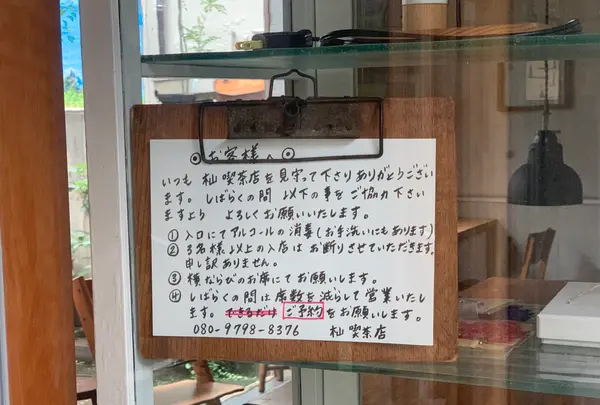 ◎お客様へ◎
いつも 杣喫茶店を見守って下さりありがとうござい
ます。しばらくの間 以下の事をご協力下さい
ますよう よろしくお願いいたします。
① 入口にてアルコールの消毒(お手洗いにもあります)
② 3名様以上の入店はお断りさせていただきます。
申し訳ありません。
③ 横ならびのお席にてお願いします。
④ しばらくの間は席数を減らして営業いたし
ます。できるだけ ご予約をお願いします。
080-9798-8376 杣喫茶店